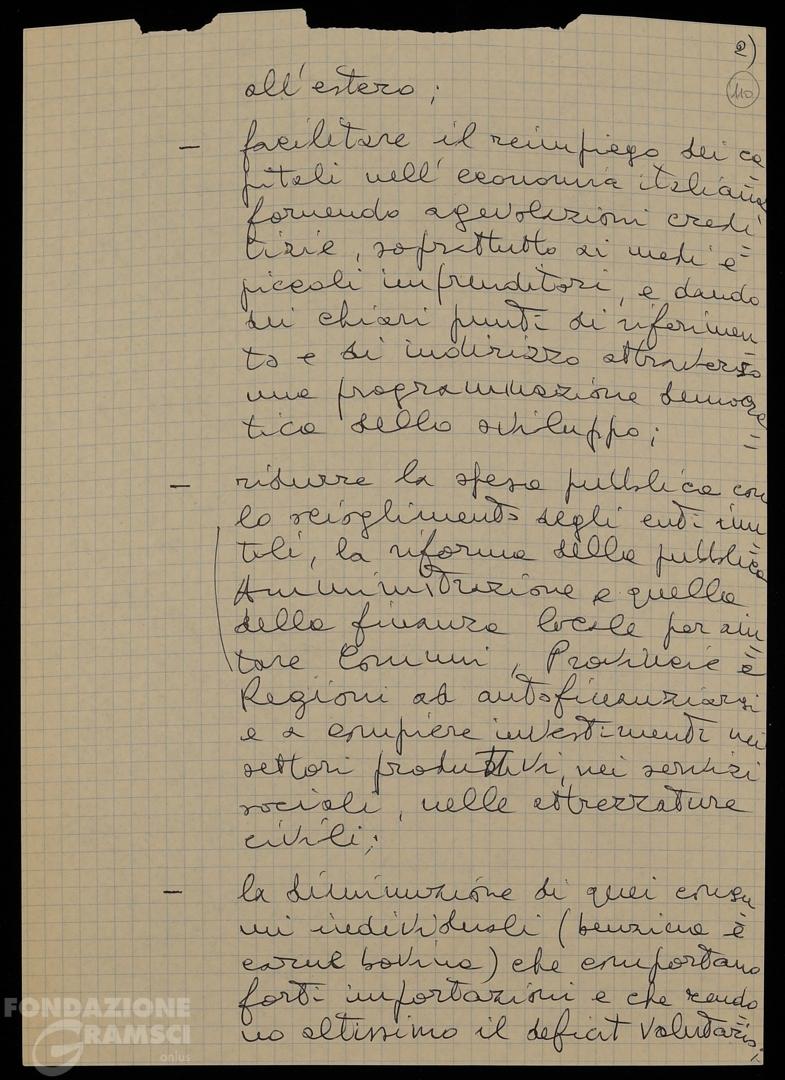 2)
110
all'estero;
- facilitare il reimpiego dei ca=
pitali nell'economia italiana
fornendo agevolazioni credi=
tizie, soprattutto ai medi e
piccoli imprenditori, e dando
dei chiari punti di riferimen=
to e di indirizzo attraverso
una programmazione democra=
tica dello sviluppo;
- ridurre la spesa pubblica con
lo scioglimento degli enti inu=
tili, la riforma della pubblica
Amministrazione e quella
della finanza locale per aiu=
tare Comuni, Provincie e
Regioni ad autofinanziarsi
e a compiere investimenti nei
settori produttivi, nei servizi
sociali, nelle attrezzature
civili;
- la diminuzione di quei consu=
mi individuali (benzina e
carne bovina) che comportano
forti importazioni e che rendo=
no altissimo il deficit valutario;
FONDAZIONE
GRAMSCI
onlus